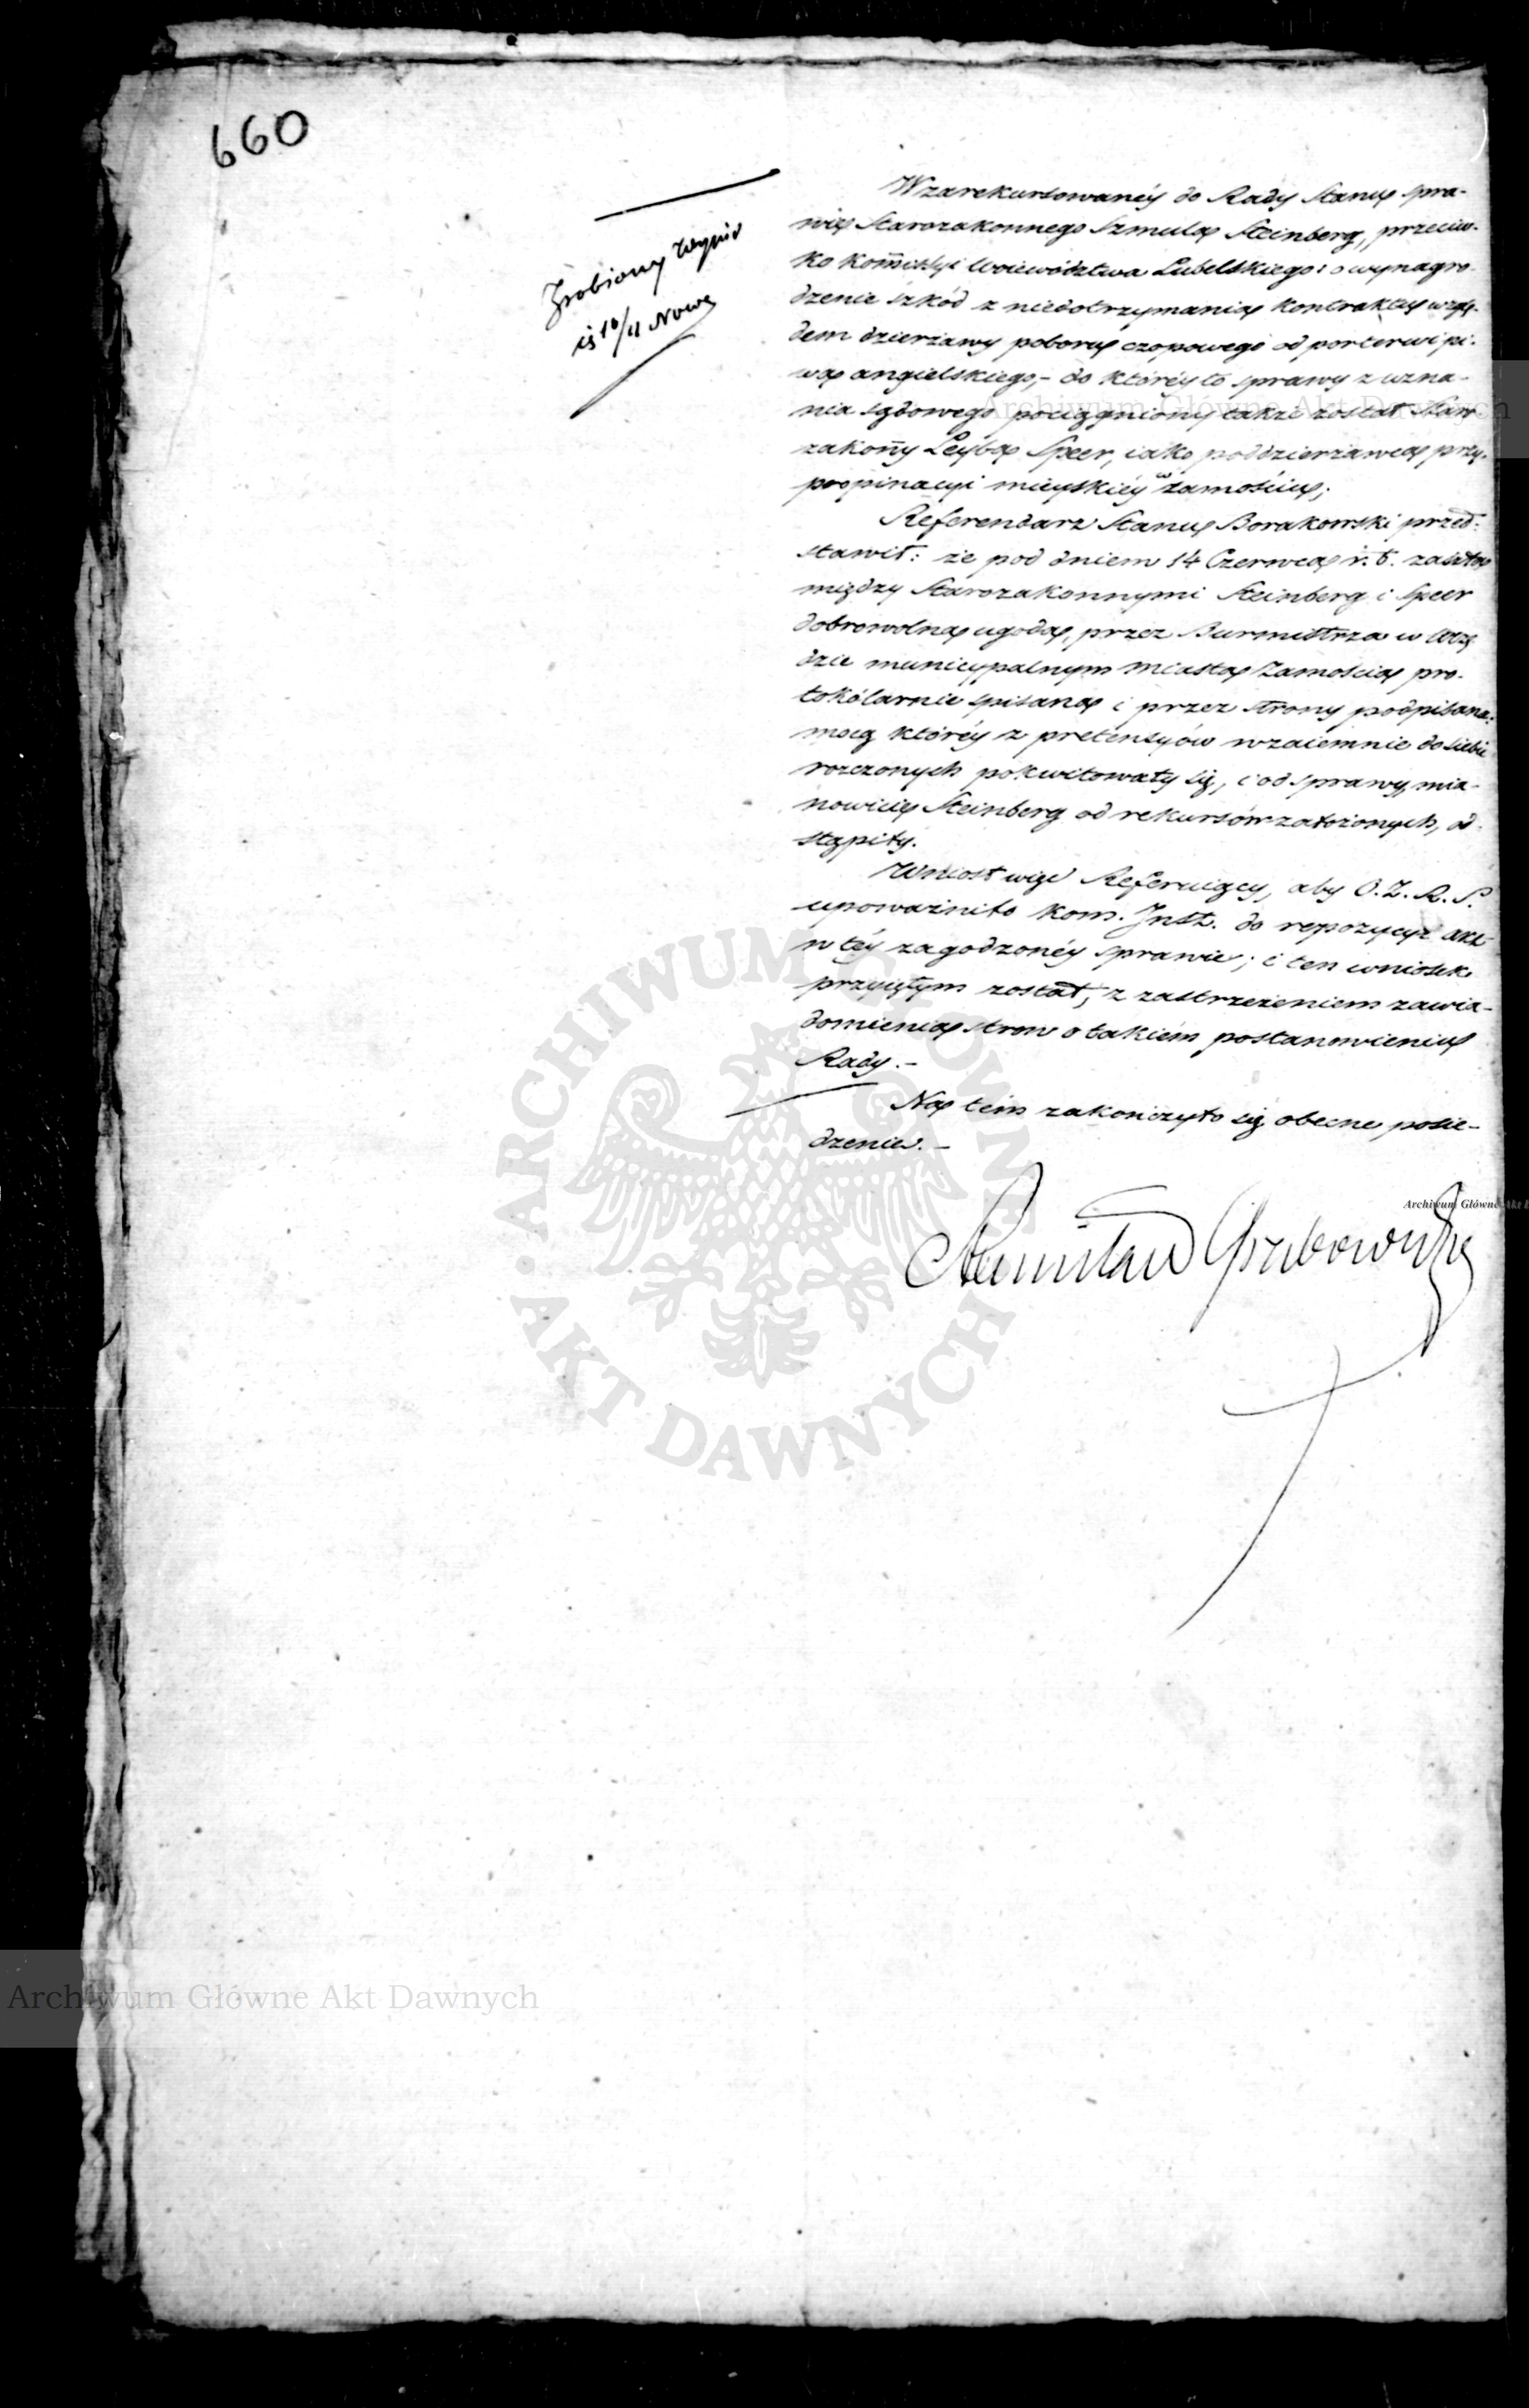 660
Zrobiony wypis
is 10/11 Nowę
W zarekursowanéy do Rady Stanu spra-
wie Starozakonnego Szmula Steinberg, przeciw-
ko Kom̄issyi Woiewództwa Lubelskiego: o wynagro-
dzenie szkód z niedotrzymania kontraktu wzglę-
dem dzierżawy poboru czopowego od porteru i pi-
wa angielskiego,- do któréy to sprawy z uzna-
nia sądowego pociągniony także został Staro
zakon̄y Leyba Speer, iako poddzierżawca przy
propinacyi mieyskiéy w Zamościu;
Referendarz Stanu Borakowski przed-
stawił: że pod dniem 14 Czerwca r. b. zaszła
między Starozakonnymi Steinberg i Speer
dobrowolna ugoda, przez Burmistrza w Urzę
dzie municypalnym Miasta Zamościa pro-
tokólarnie spisana i przez strony podpisana:
mocą któréy z pretensyów wzaiemnie do siebie
roszczonych pokwitowały się, i od sprawy, mia-
nowicie Steinberg od rekursów założonych, od-
stąpiły.
Wniósł więc Referuiący, aby O. Z. R. S.
upoważniło Kom. Inst. do repozycyi akt
w téy zagodzonéy sprawie; i ten wniosek
przyiętym został, z zastrzeżeniem zawia-
domienia stron o takiém postanowieniu
Rady.-
Na tém zakończyło się obecne posie-
dzenie.-
Stanisław Grabowski
Archiwum Główne Akt Dawnych
Archiwum Główne Akt
ARCHIWUM GŁÓWNE
AKT DAWNYCH
Archiwum Główne Akt Dawnych